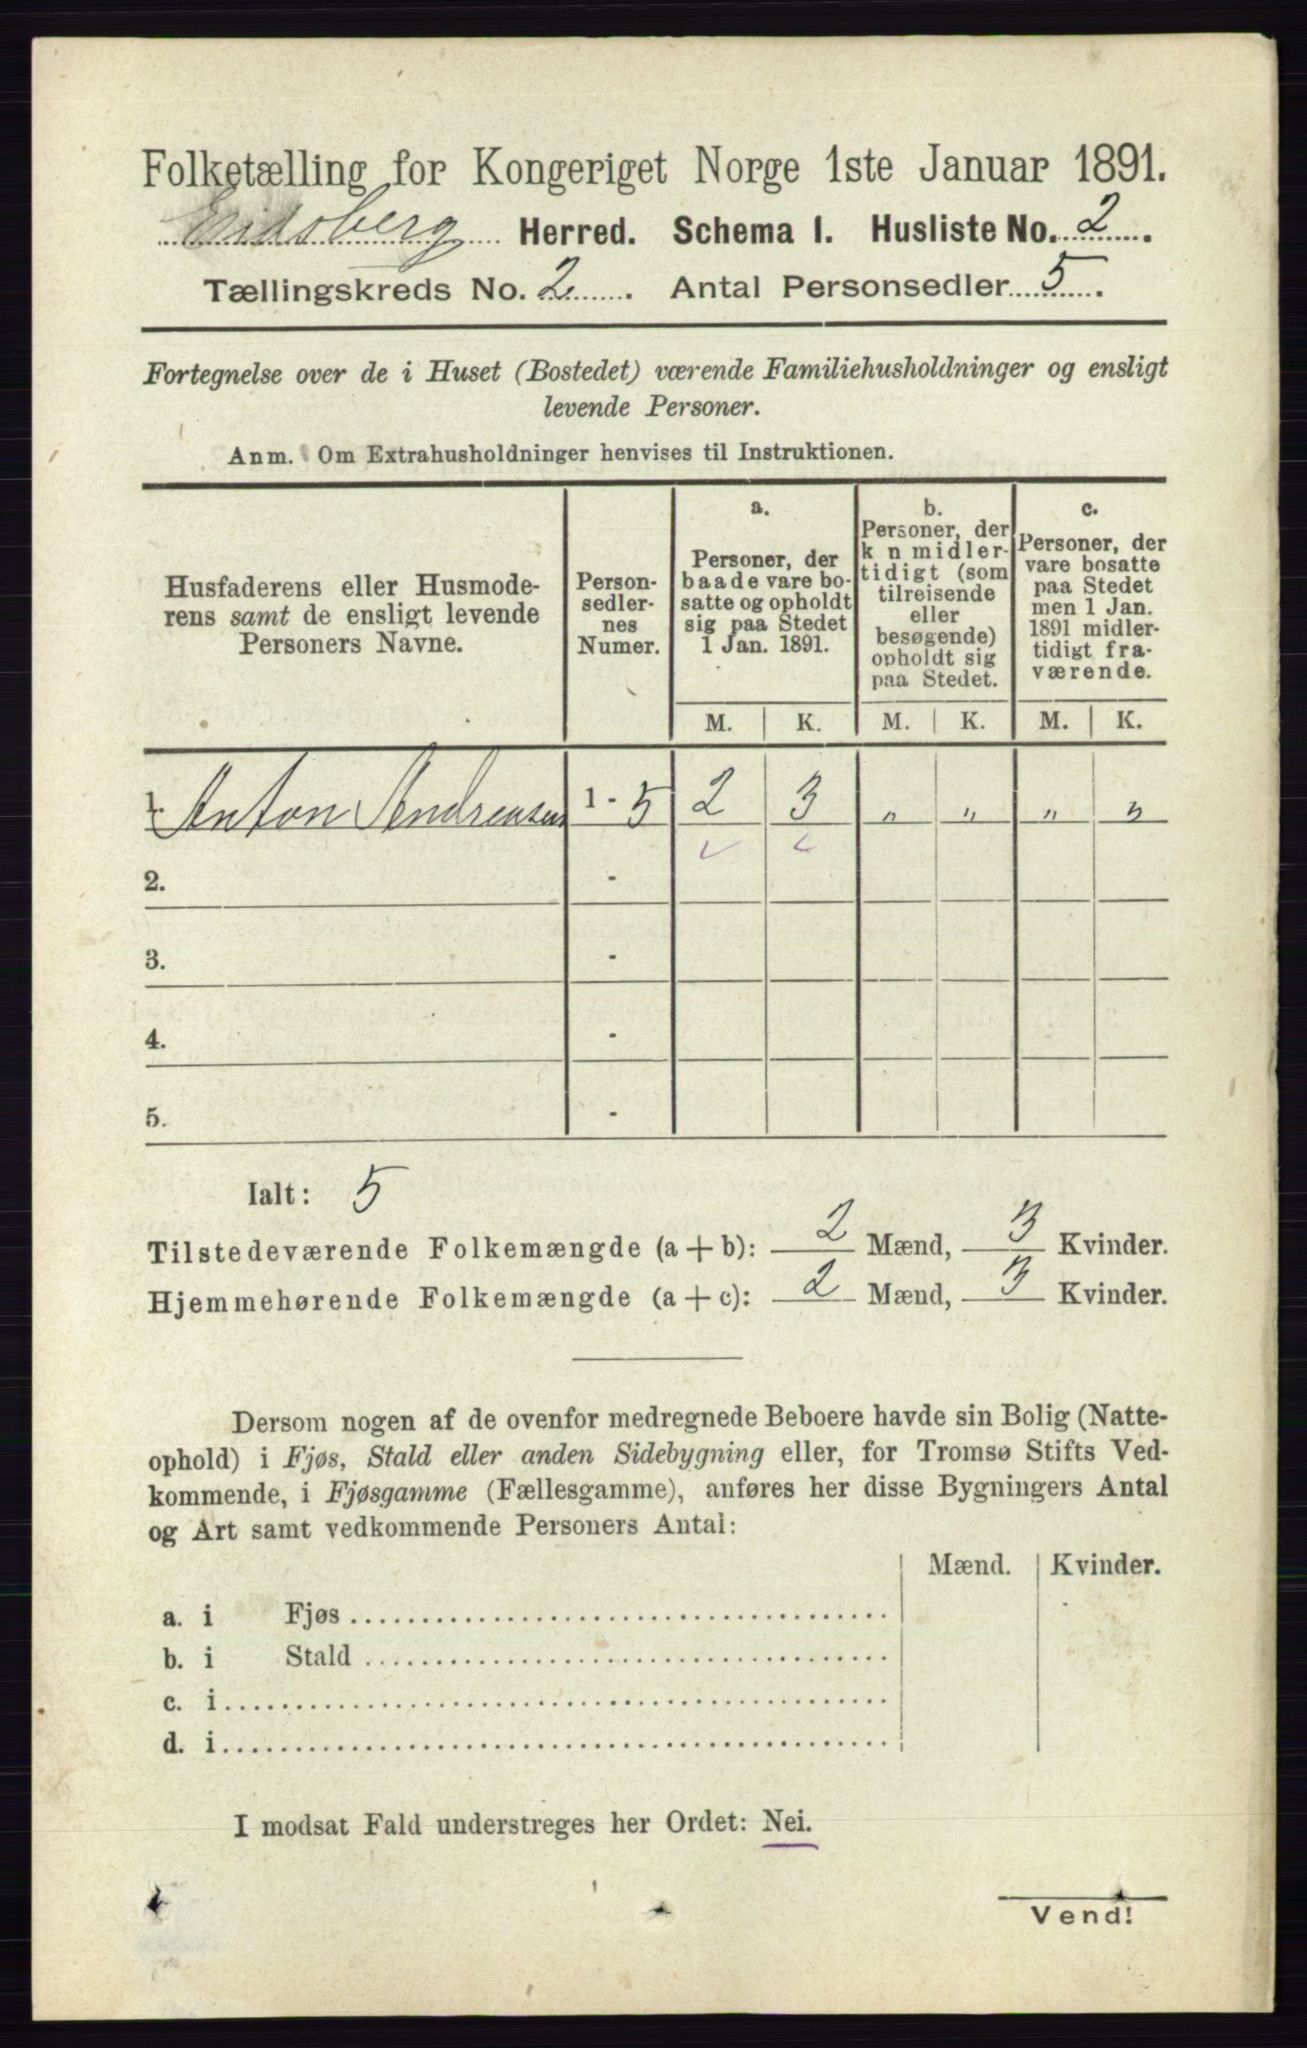 Folketælling for Kongeriget Norge 1ste Januar 1891.
Eidsberg Herred. Schema 1. Husliste No. 2.
Tællingskreds No. 2. Antal Personsedler 5.
Fortegnelse over de i Huset (Bostedet) værende Familiehusholdninger og ensligt
levende Personer.
Anm. Om Extrahusholdninger henvises til Instruktionen.
Husfaderens eller Husmode-
rens samt de ensligt levende
Personers Navne.
Person-
sedler-
nes
Numer.
a.
Personer, der
baade vare bo-
satte og opholdt
sig paa Stedet
1 Jan. 1891.
b.
Personer, der
k n midler-
tidigt (som
tilreisende
eller
besøgende)
opholdt sig
paa Stedet.
c.
Personer, der
vare bosatte
paa Stedet
men 1 Jan.
1891 midler-
tidigt fra-
værende.
M. K. M. K. M. K.
1. Anton Andreasen 1 - 5 2 3 „ „ „ „
2. -
3. -
4. -
5. -
Ialt: 5
Tilstedeværende Folkemængde (a + b): 2 Mænd, 3 Kvinder.
Hjemmehørende Folkemængde (a + c): 2 Mænd, 3 Kvinder.
Dersom nogen af de ovenfor medregnede Beboere havde sin Bolig (Natte-
ophold) i Fjøs, Stald eller anden Sidebygning eller, for Tromsø Stifts Ved-
kommende, i Fjøsgamme (Fællesgamme), anføres her disse Bygningers Antal
og Art samt vedkommende Personers Antal:
Mænd. Kvinder.
a. i Fjøs
b. i Stald
c. i
d. i
I modsat Fald understreges her Ordet: Nei.
Vend!